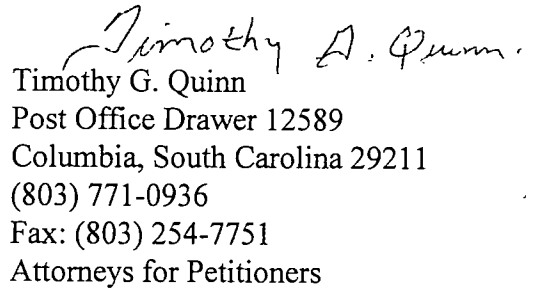 Timothy G. Quinn.
Timothy G. Quinn
Post Office Drawer 12589
Columbia, South Carolina 29211
(803) 771-0936
Fax: (803) 254-7751
Attorneys for Petitioners